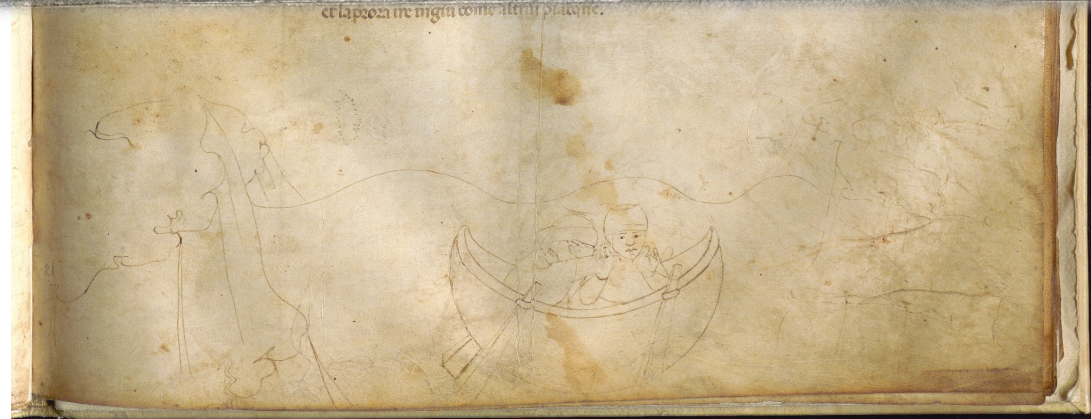 et la prora ire ingiu come altrui piacque.